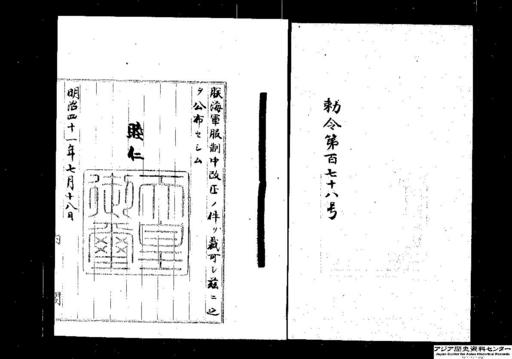 勅令第百七十八号
朕海軍服制中改正ノ件ヲ裁可シ茲ニ之
ヲ公布セシム
睦仁
天皇
御璽
明治四十一年七月十八日
内閣
アジア歴史資料センター
Japan Center for Asian Historical Records